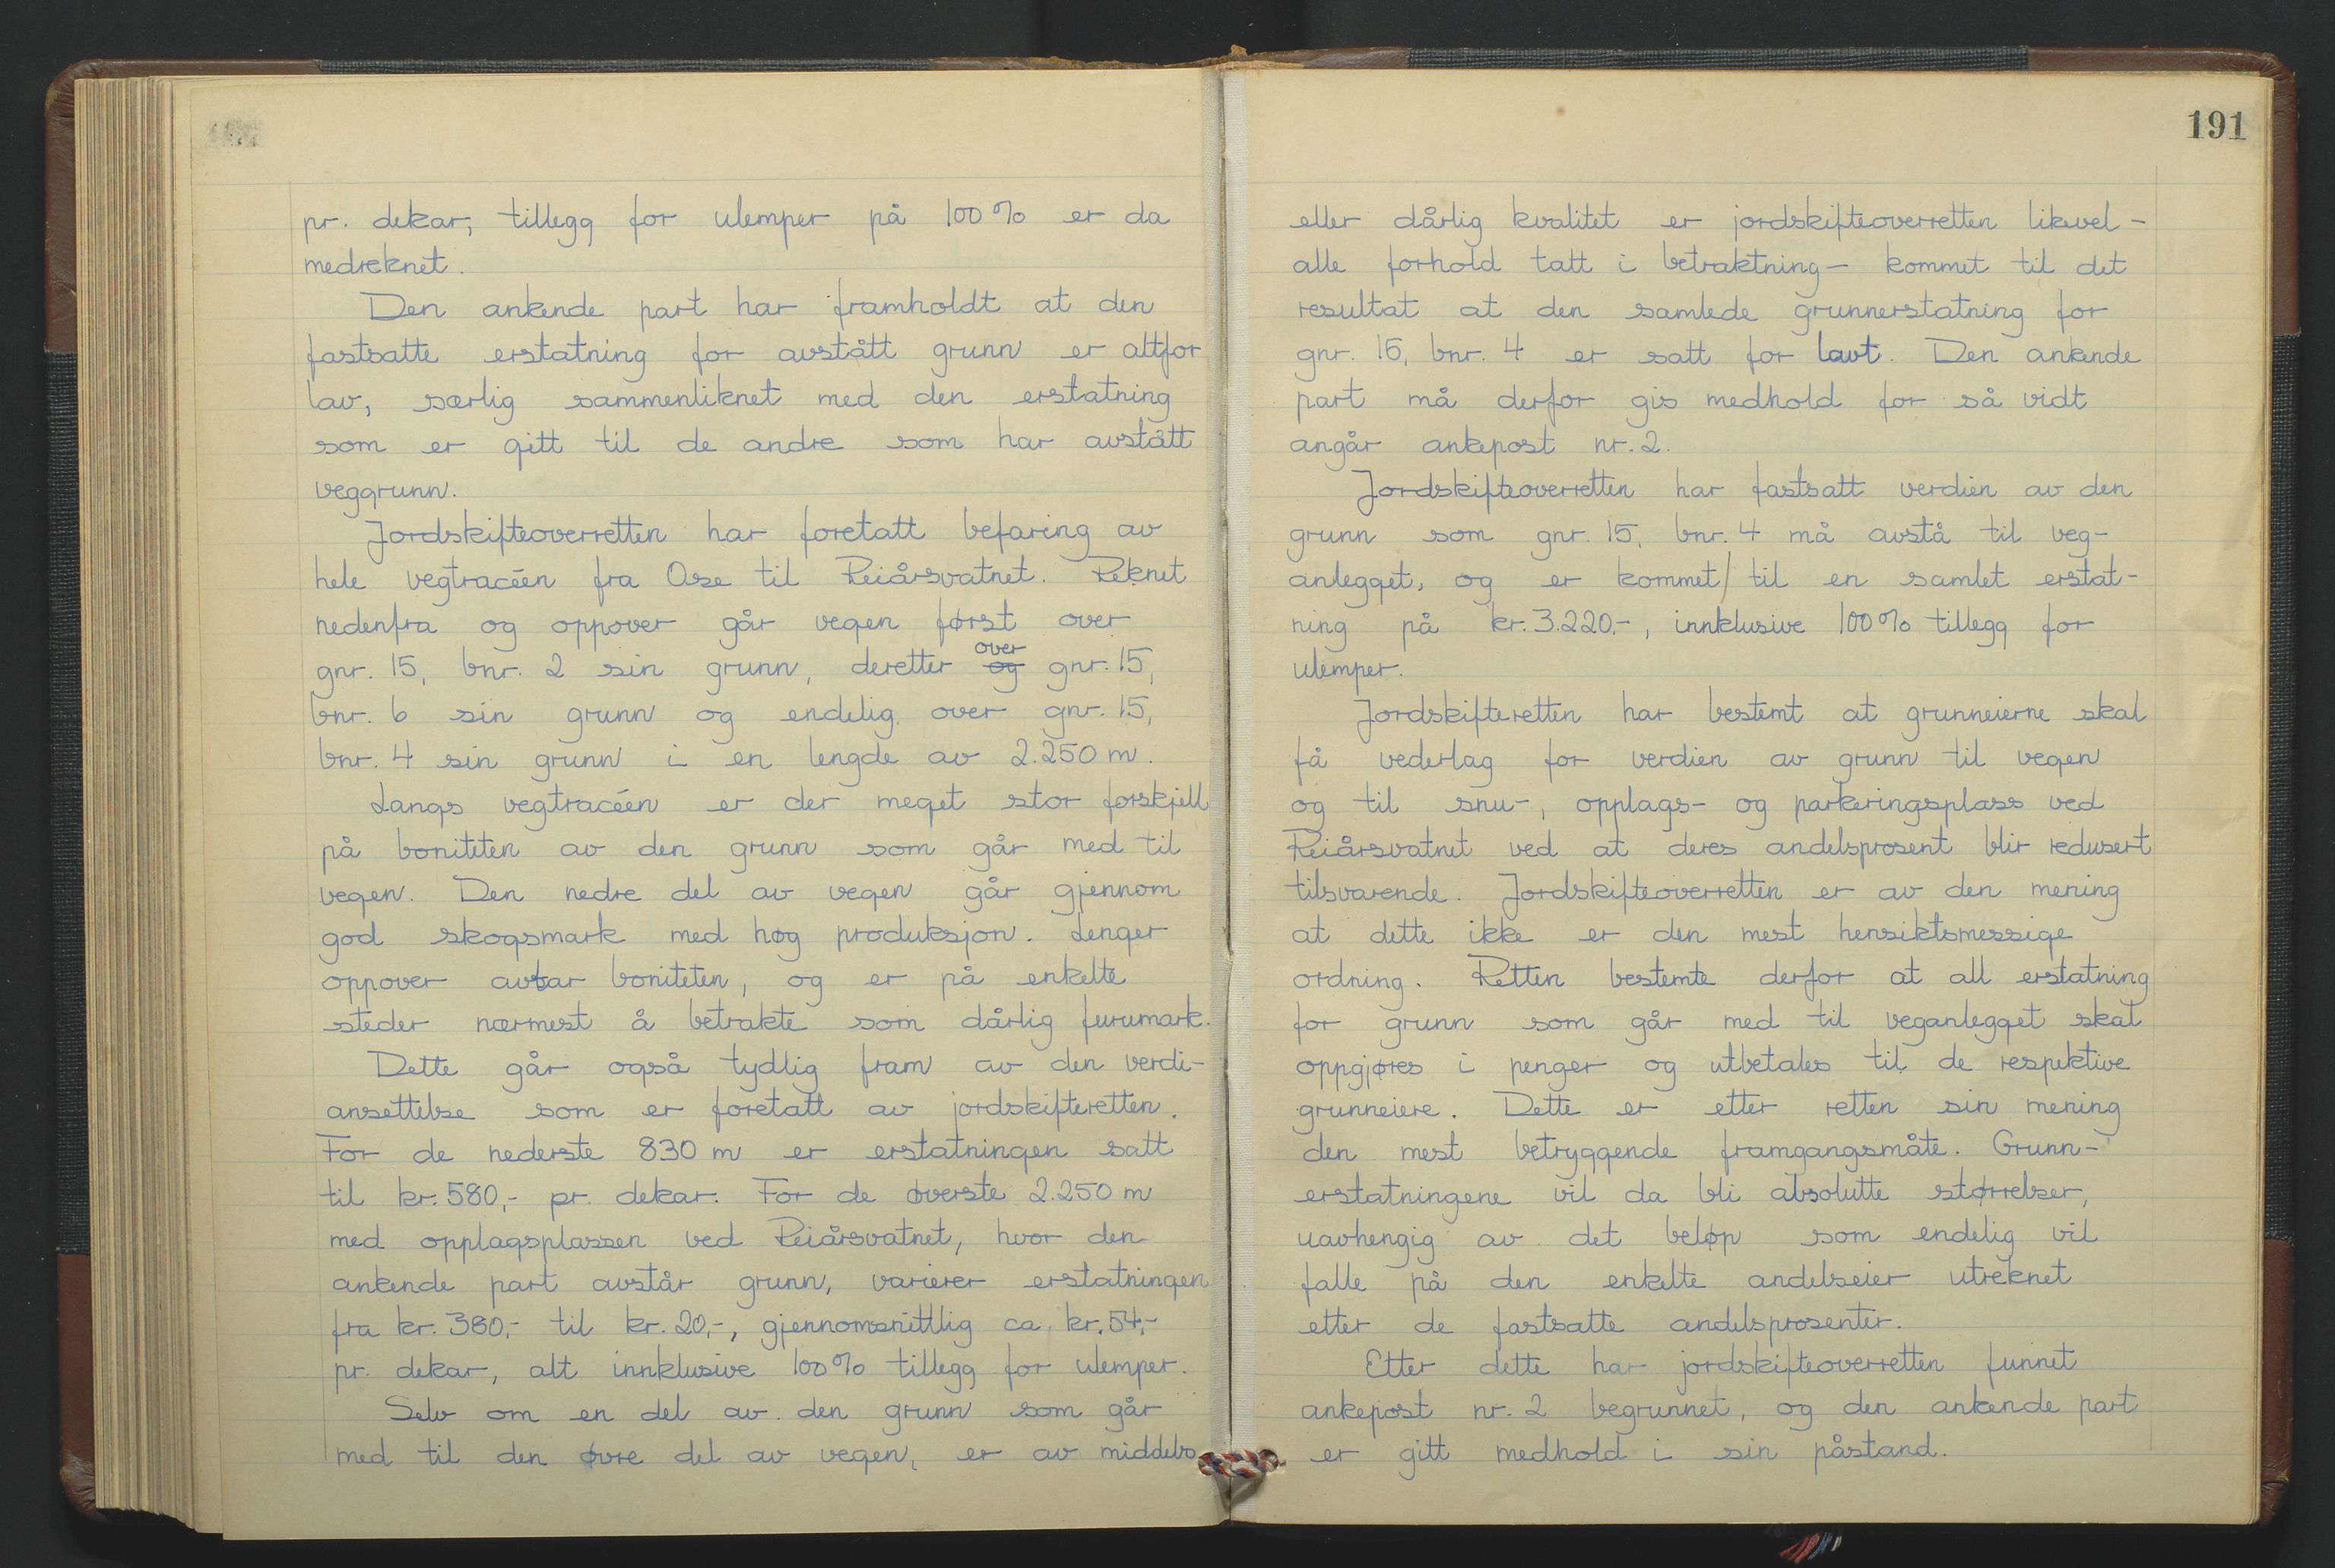 pr. dekar, tillegg for ulemper på 100% er da
medreknet.
Den ankende part har framholdt at den
fastsatte erstatning for avstått grunn er altfor
lav, særlig sammenliknet med den erstatning
som er gitt til de andre som har avstått
veggrunn.
Jordskifteoverretten har foretatt befaring av
hele vegtracéen fra Ose til Reiårsvatnet. Reknet
nedenfra og oppover går vegen først over
gnr. 15, bnr. 2 sin grunn, deretter over og gnr. 15,
bnr. 6 sin grunn og endelig over gnr. 15,
bnr. 4 sin grunn i en lengde av 2.250 m.
Langs vegtracéen er der meget stor forskjell
på boniteten av den grunn som går med til
vegen. Den nedre del av vegen går gjennom
god skogsmark med høg produksjon. Lenger
oppover avtar boniteten, og er på enkelte
steder nærmest å betrakte som dårlig furumark.
Dette går også tydlig fram av den verdi-
ansettelse som er foretatt av jordskifteretten.
For de nederste 830 m er erstatningen satt
til kr. 580,- pr. dekar. For de øverste 2.250 m
med opplagsplassen ved Reiårsvatnet, hvor den
ankende part avstår grunn, varierer erstatningen
fra kr. 380,- til kr. 20,-, gjennomsnittlig ca. kr. 54,-
pr. dekar, alt innklusive 100% tillegg for ulemper.
Selv om en del av den grunn som går
med til den øvre del av vegen, er av middels
191
eller dårlig kvalitet er jordskifteoverretten likevel -
alle forhold tatt i betraktning - kommet til det
resultat at den samlede grunnerstatning for
gnr. 15, bnr. 4 er satt for lavt. Den ankende
part må derfor gis medhold for så vidt
angår ankepost nr. 2.
Jordskifteoverretten har fastsatt verdien av den
grunn som gnr. 15, bnr. 4 må avstå til veg-
anlegget, og er kommet/ til en samlet erstat-
ning på kr. 3.220.-, innklusive 100% tillegg for
ulemper.
Jordskifteretten har bestemt at grunneierne skal
få vederlag for verdien av grunn til vegen
og til snu-, opplags- og parkeringsplass ved
Reiårsvatnet ved at deres andelsprosent blir redusert
tilsvarende. Jordskifteoverretten er av den mening
at dette ikke er den mest hensiktsmessige
ordning. Retten bestemte derfor at all erstatning
for grunn som går med til veganlegget skal
oppgjøres i penger og utbetales til de respektive
grunneiere. Dette er etter retten sin mening
den mest betryggende framgangsmåte. Grunn-
erstatningene vil da bli absolutte størrelser,
uavhengig av det beløp som endelig vil
falle på den enkelte andelseier utreknet
etter de fastsatte andelsprosenter.
Etter dette har jordskifteoverretten funnet
ankepost nr. 2 begrunnet, og den ankende part
er gitt medhold i sin påstand.